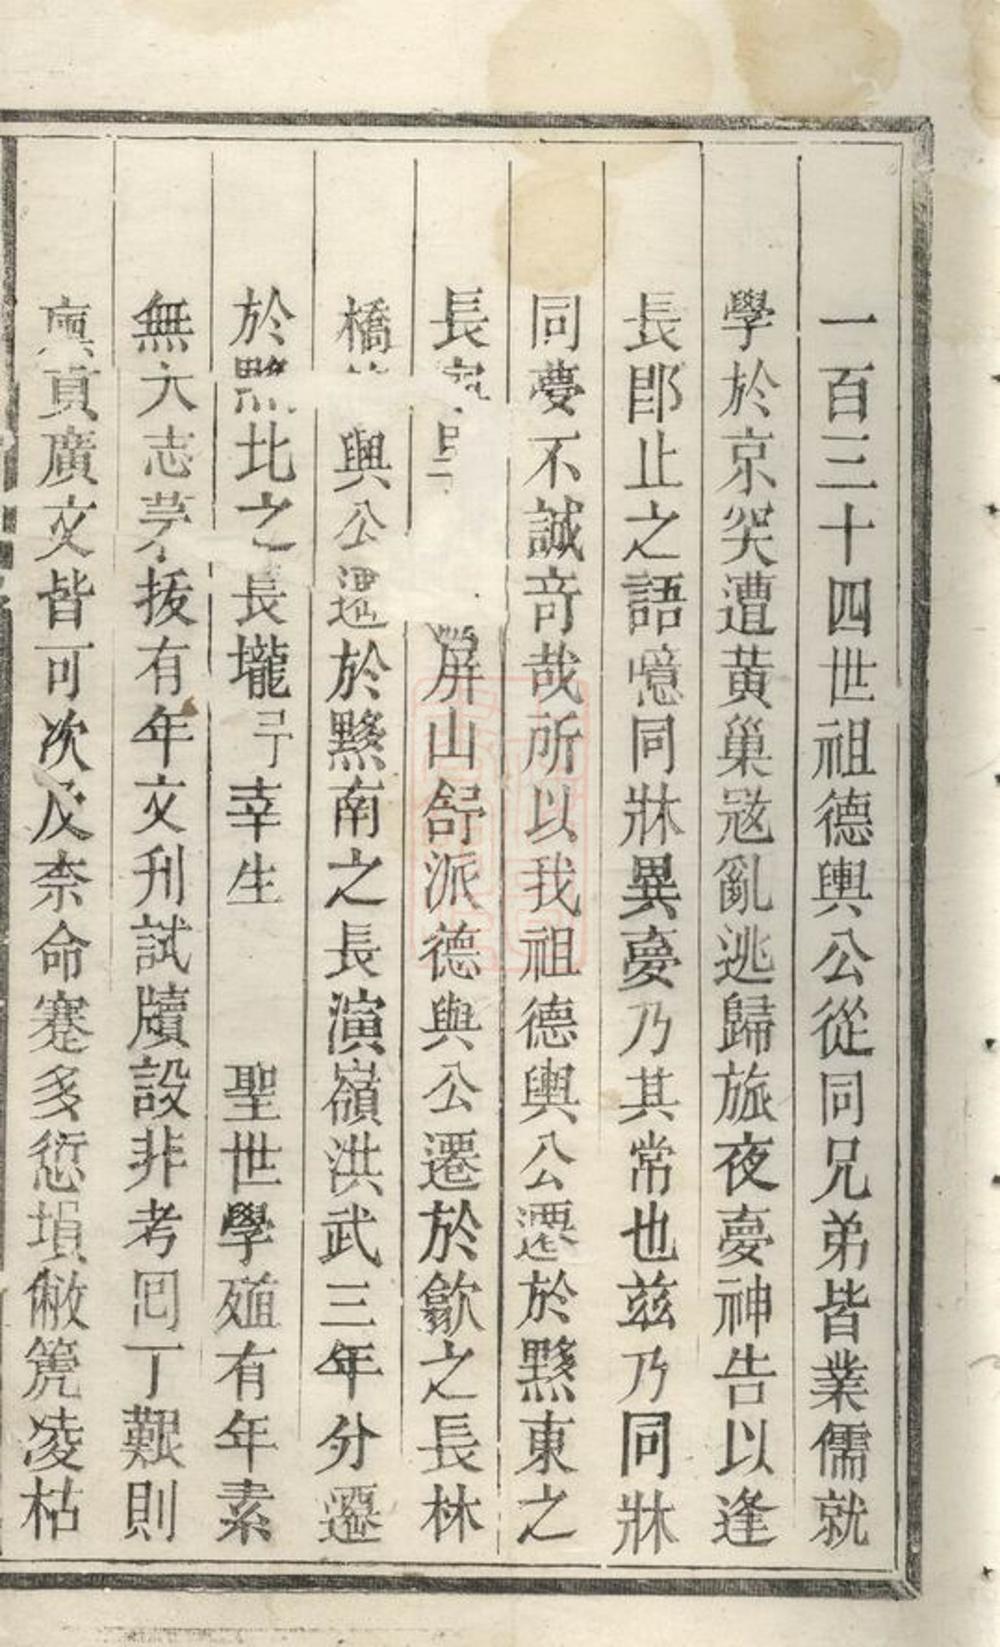 一百三十四世祖德輿公從同兄弟皆業儒就
學於京突遭黄巢寇亂逃歸旅夜夢神告以逢
長郎止之語憶同牀異夢乃其常也兹乃同牀
同夢不誠奇哉所以我祖德輿公遷於黟東之
長屏山舒派德輿公遷於歙之長林
橋輿公遷於黟南之長演嶺洪武三年分遷
於黟北之長壠予幸生聖世學殖有年素
無大志茅拔有年文刋試牘設非考囘丁艱則
廪貢廣文皆可次及奈命蹇多愆塤僌箎凌枯